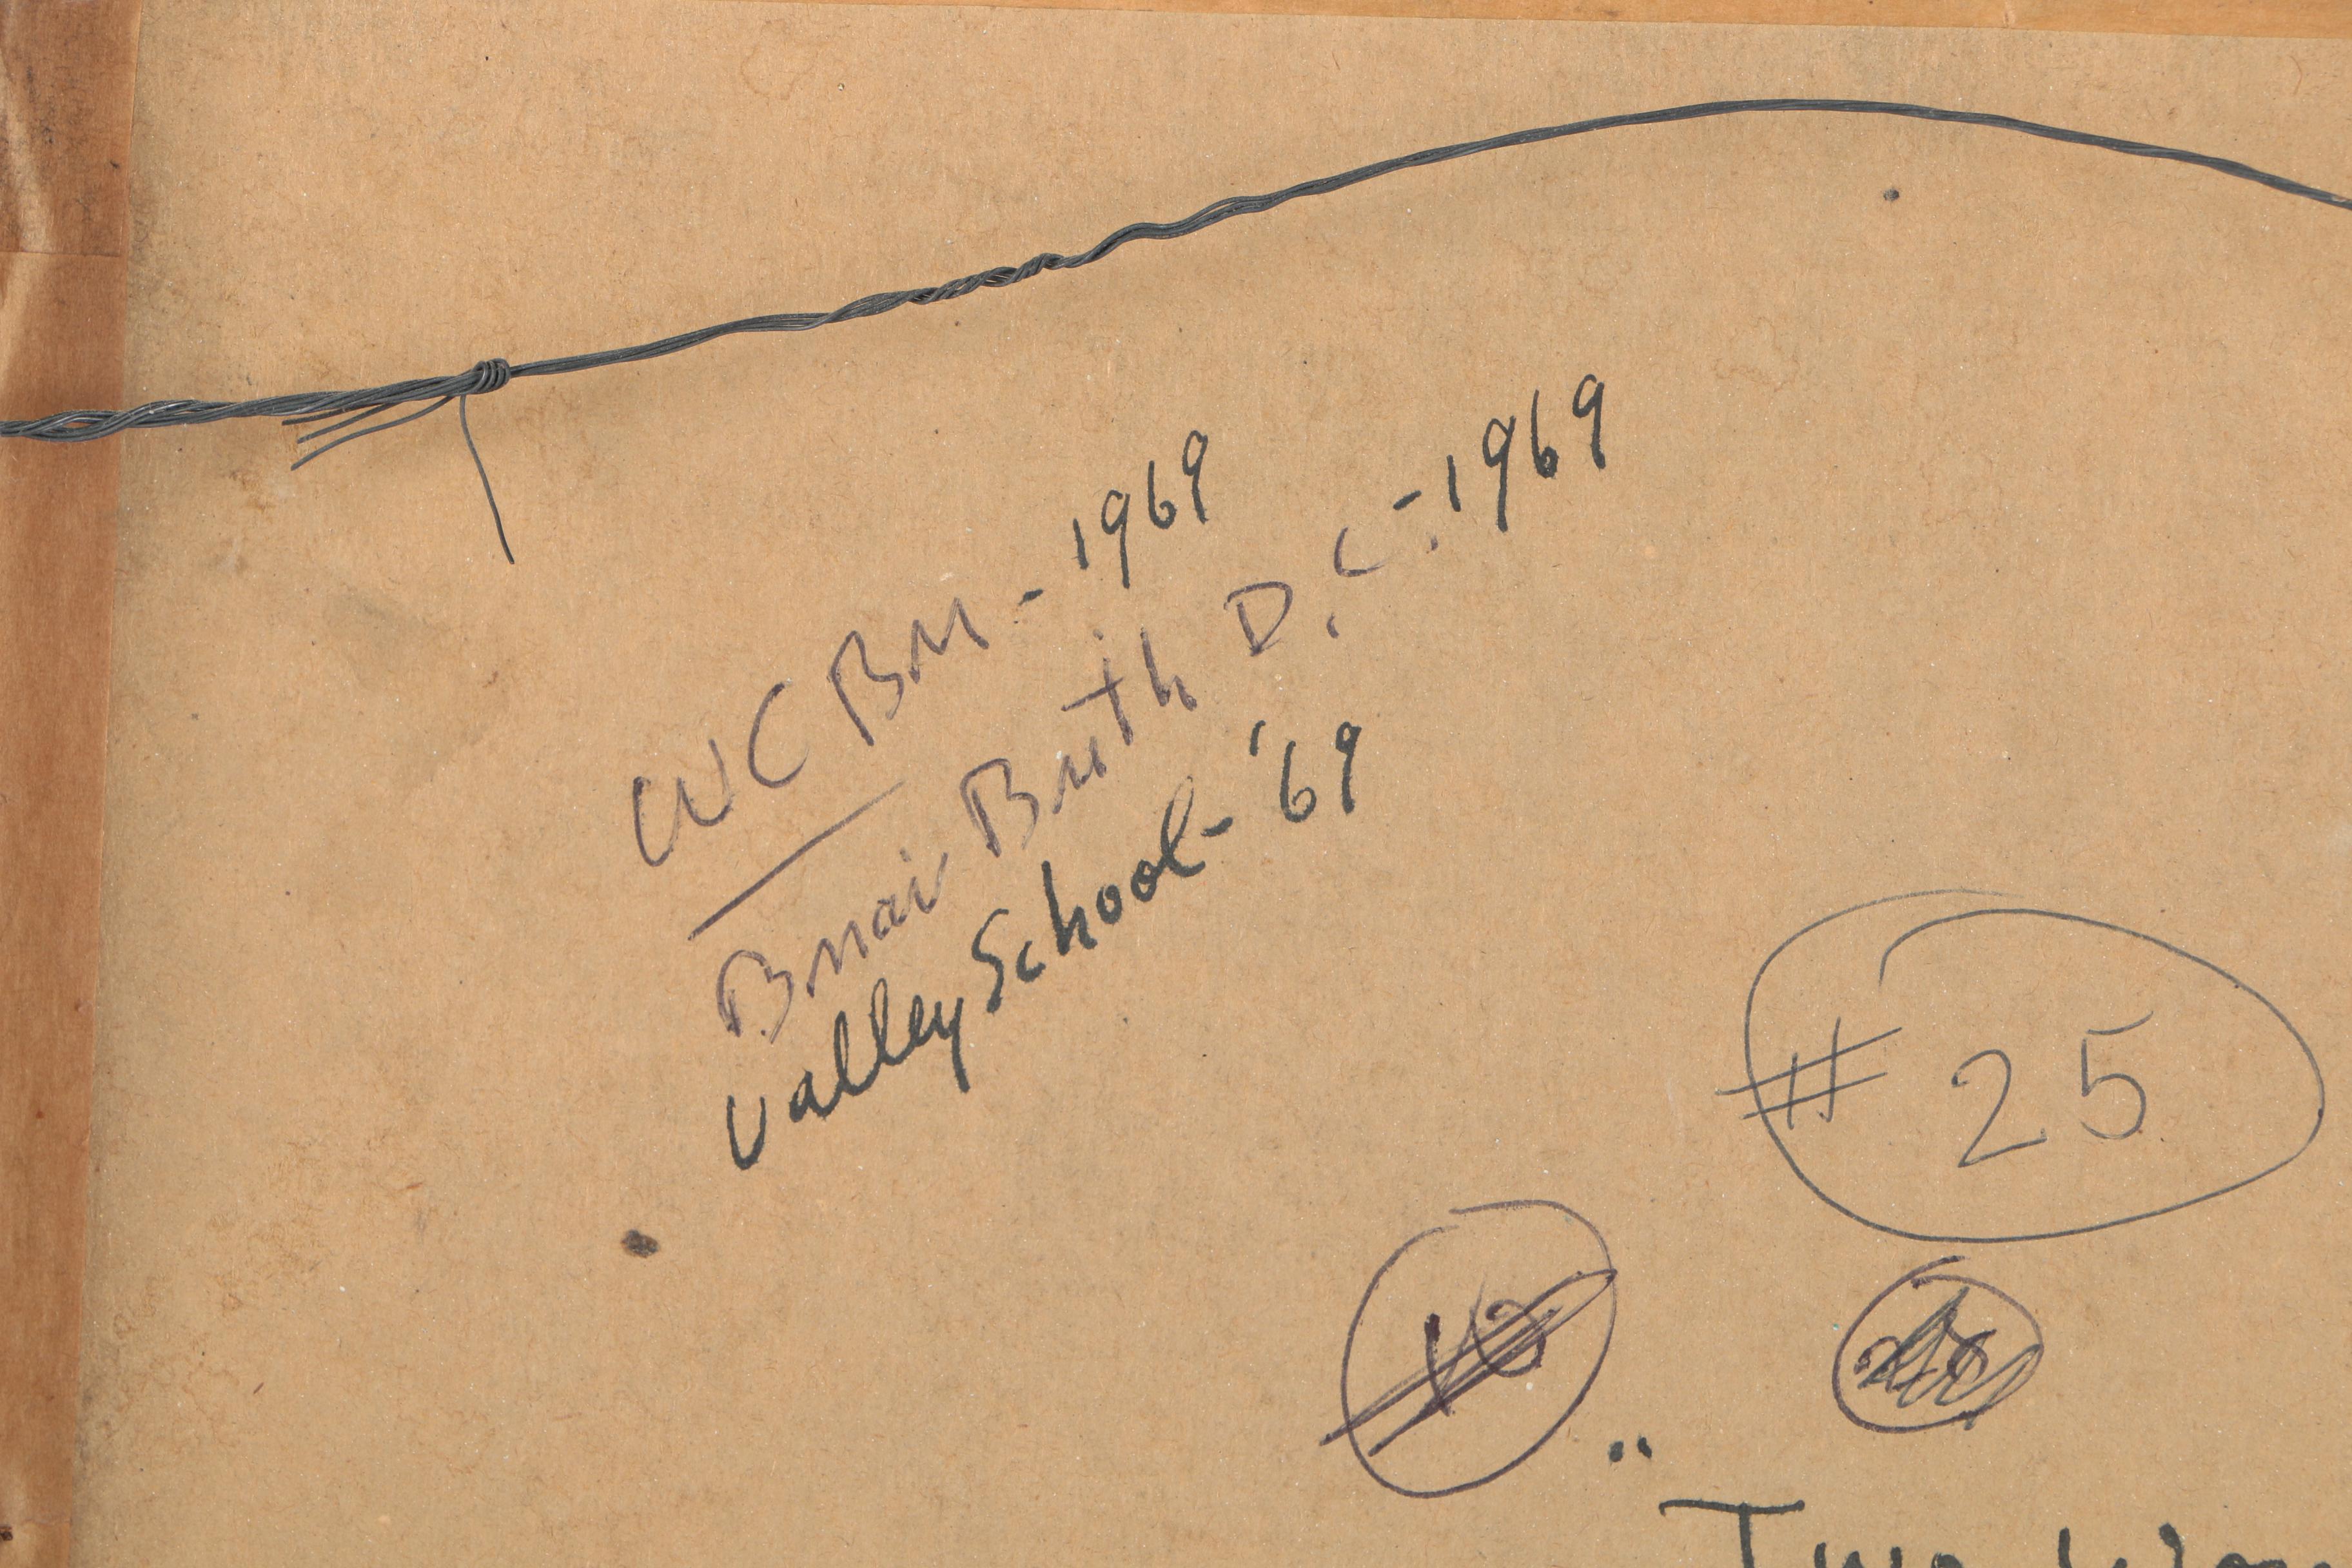 WCBM - 1969
Bnai Brith D.C. - 1969
Valley School - '69
# 25
"Two